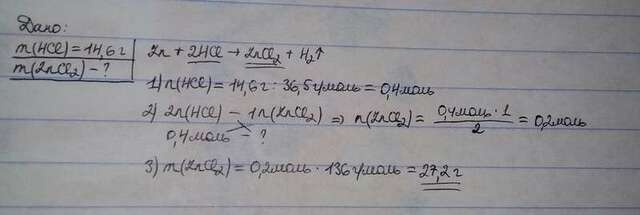 Дано:
m(HCl)=14,6г
m(ZnCl₂)-?
Zn + 2HCl → ZnCl₂ + H₂↑
1) n(HCl) = 14,6г : 36,5г/моль = 0,4моль
2) 2n(HCl) – 1n(ZnCl₂) ⇒ n(ZnCl₂) = 0,4моль · 1 / 2 = 0,2моль
0,4моль – ?
3) m(ZnCl₂) = 0,2моль · 136г/моль = 27,2г